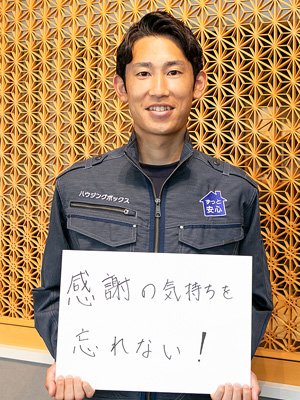 ハウジングボックス
ずっと
安心
感謝の気持ちを
忘れない！